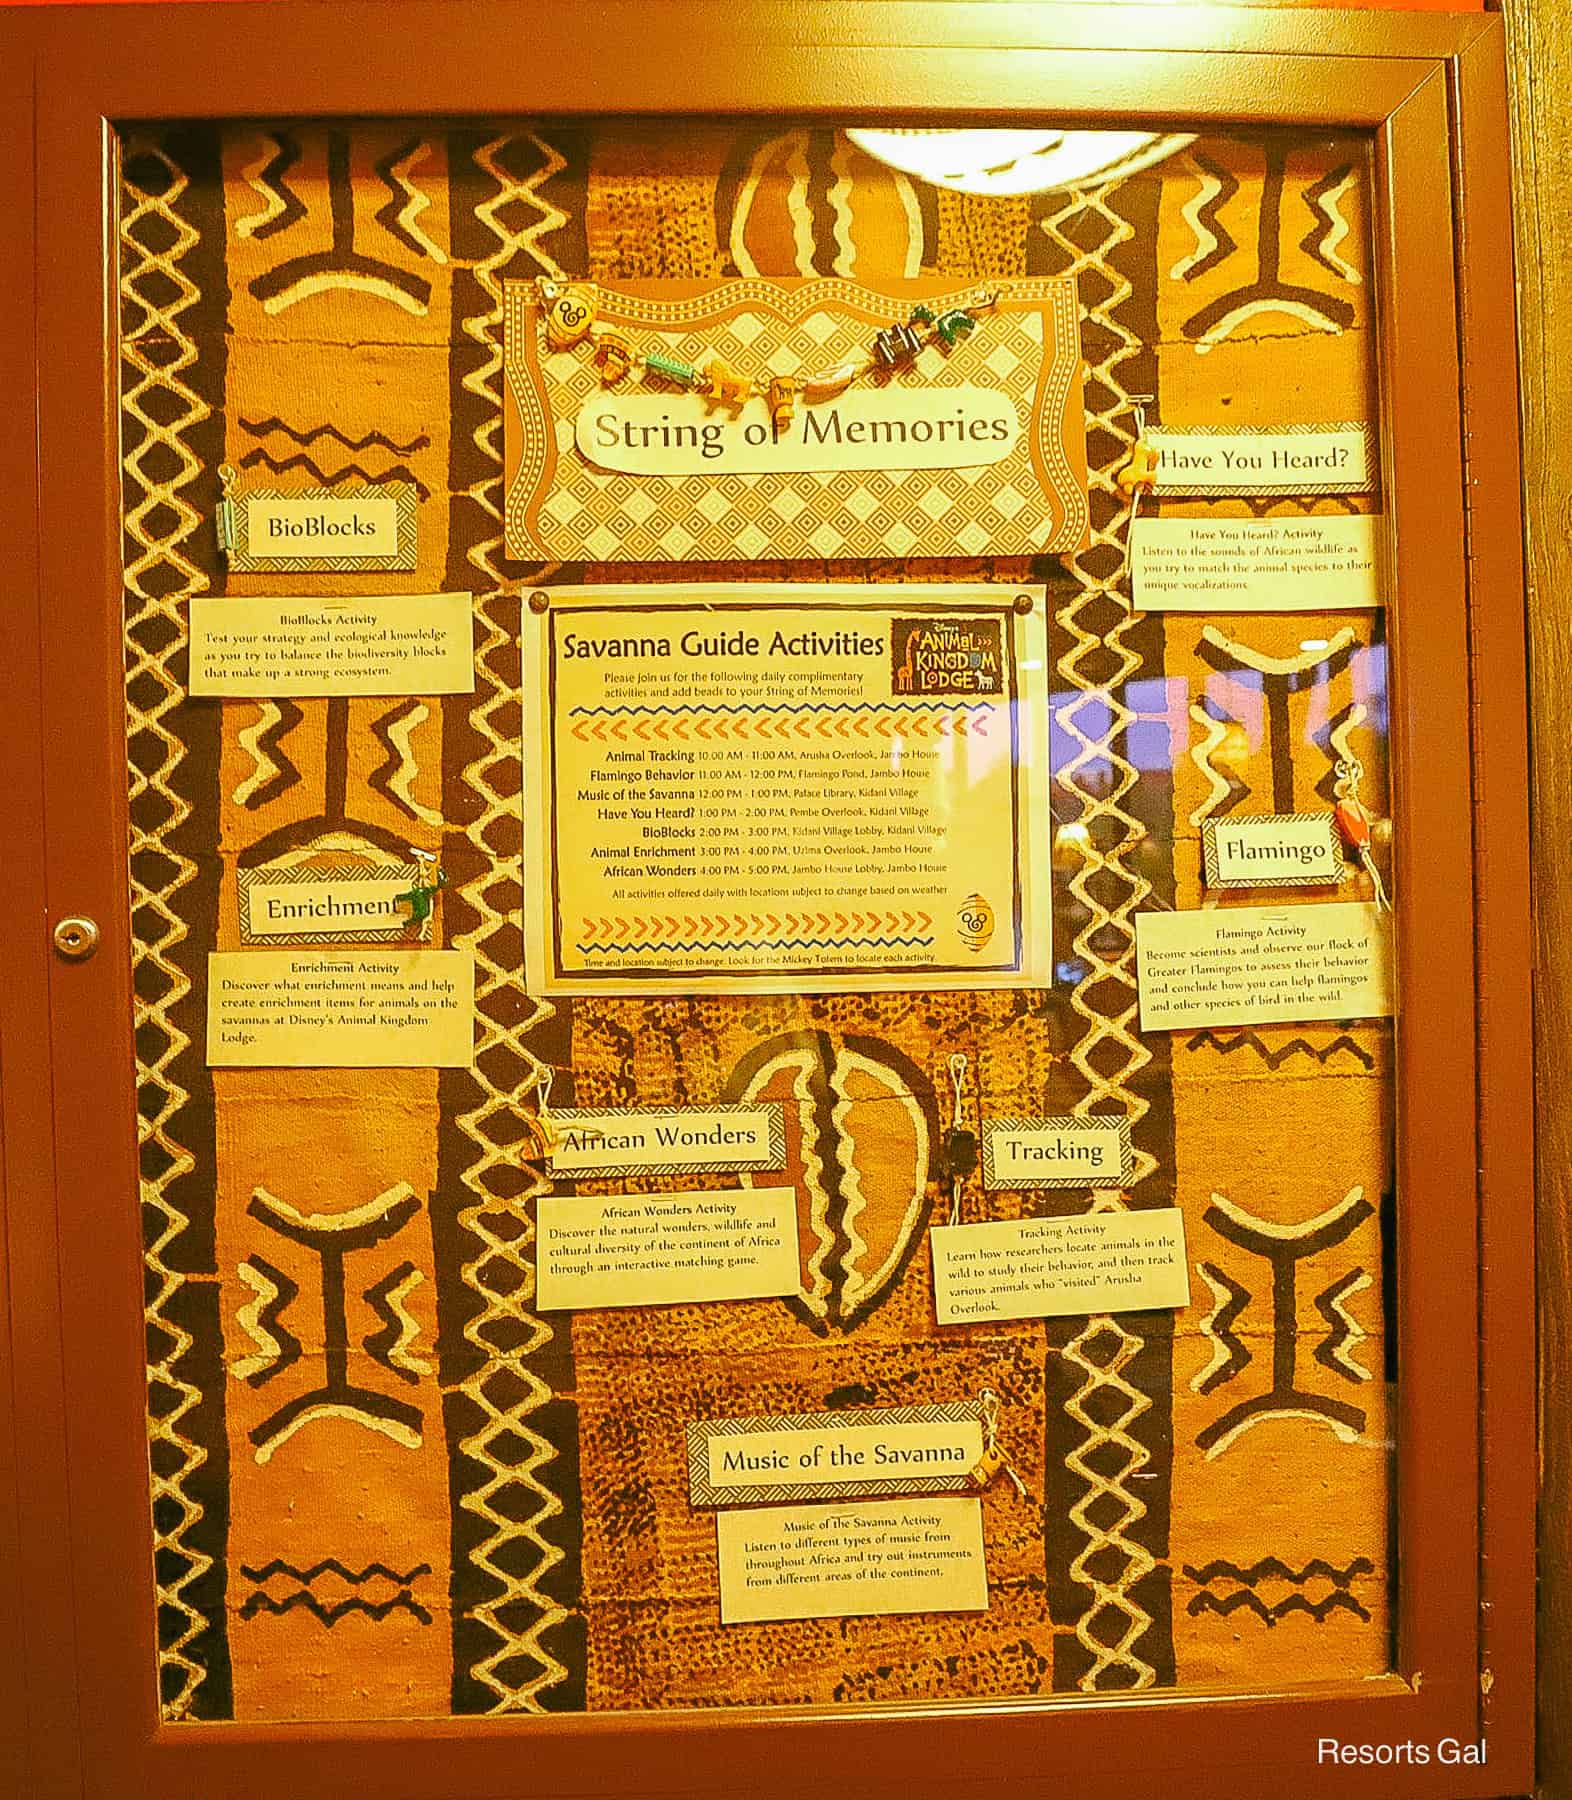 String of Memories
BioBlocks
BioBlocks Activity
Test your strategy and ecological knowledge
as you try to balance the biodiversity blocks
that make up a strong ecosystem.
Have You Heard?
Have You Heard? Activity
Listen to the sounds of African wildlife as
you try to match the animal species to their
unique vocalizations.
Savanna Guide Activities
Disney's
ANIMAL
KINGDOM
LODGE
Please join us for the following daily complimentary
activities and add beads to your String of Memories!
Animal Tracking 10:00 AM - 11:00 AM, Arusha Overlook, Jambo House
Flamingo Behavior 11:00 AM - 12:00 PM, Flamingo Pond, Jambo House
Music of the Savanna 12:00 PM - 1:00 PM, Palace Library, Kidani Village
Have You Heard? 1:00 PM - 2:00 PM, Pembe Overlook, Kidani Village
BioBlocks 2:00 PM - 3:00 PM, Kidani Village Lobby, Kidani Village
Animal Enrichment 3:00 PM - 4:00 PM, Uzima Overlook, Jambo House
African Wonders 4:00 PM - 5:00 PM, Jambo House Lobby, Jambo House
All activities offered daily with locations subject to change based on weather
Time and location subject to change. Look for the Mickey Totem to locate each activity.
Enrichment
Enrichment Activity
Discover what enrichment means and help
create enrichment items for animals on the
savannas at Disney's Animal Kingdom
Lodge.
Flamingo
Flamingo Activity
Become scientists and observe our flock of
Greater Flamingos to assess their behavior
and conclude how you can help flamingos
and other species of bird in the wild.
African Wonders
African Wonders Activity
Discover the natural wonders, wildlife and
cultural diversity of the continent of Africa
through an interactive matching game.
Tracking
Tracking Activity
Learn how researchers locate animals in the
wild to study their behavior, and then track
various animals who "visited" Arusha
Overlook.
Music of the Savanna
Music of the Savanna Activity
Listen to different types of music from
throughout Africa and try out instruments
from different areas of the continent.
Resorts Gal